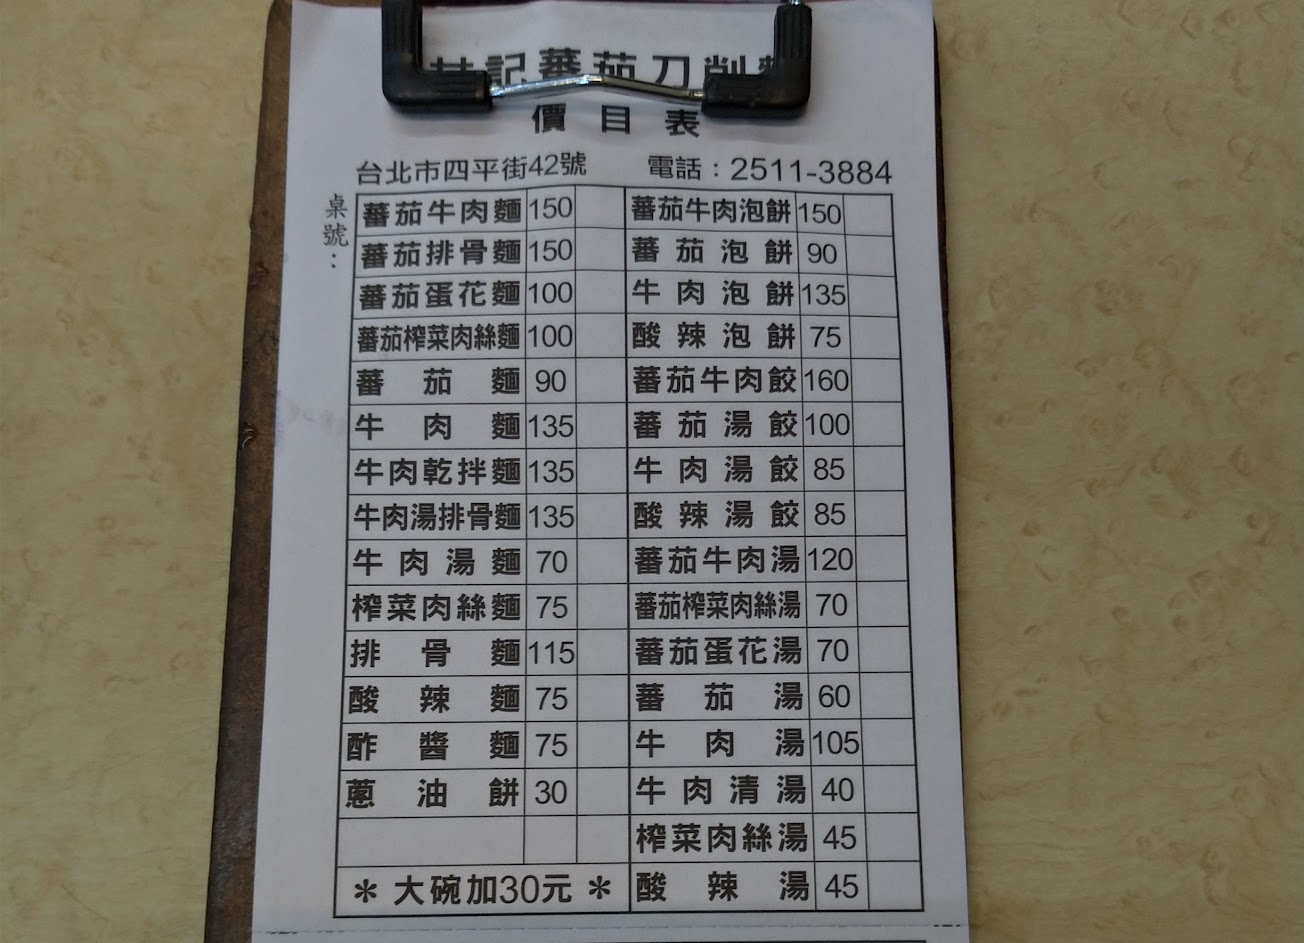 記蕃茄刀削
價目表
台北市四平街42號 電話：2511-3884
桌號：
蕃茄牛肉麵 150 蕃茄牛肉泡餅 150
蕃茄排骨麵 150 蕃茄泡餅 90
蕃茄蛋花麵 100 牛肉泡餅 135
蕃茄榨菜肉絲麵 100 酸辣泡餅 75
蕃茄麵 90 蕃茄牛肉餃 160
牛肉麵 135 蕃茄湯餃 100
牛肉乾拌麵 135 牛肉湯餃 85
牛肉湯排骨麵 135 酸辣湯餃 85
牛肉湯麵 70 蕃茄牛肉湯 120
榨菜肉絲麵 75 蕃茄榨菜肉絲湯 70
排骨麵 115 蕃茄蛋花湯 70
酸辣麵 75 蕃茄湯 60
酢醬麵 75 牛肉湯 105
蔥油餅 30 牛肉清湯 40
榨菜肉絲湯 45
＊大碗加30元＊ 酸辣湯 45